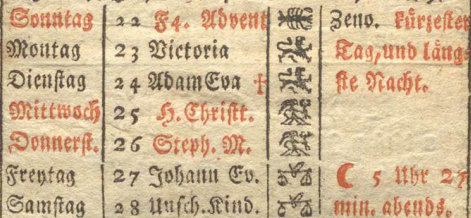 Sonntag 22 F4. Advent Zeno. kürzester
Montag 23 Victoria Tag, und läng⸗
Dienstag 24 Adam Eva † ste Nacht.
Mittwoch 25 H. Christt.
Donnerst. 26 Steph. M.
Freytag 27 Johann Ev. ☾ 5 Uhr 27
Samstag 28 Unsch. Kind. min. abends.